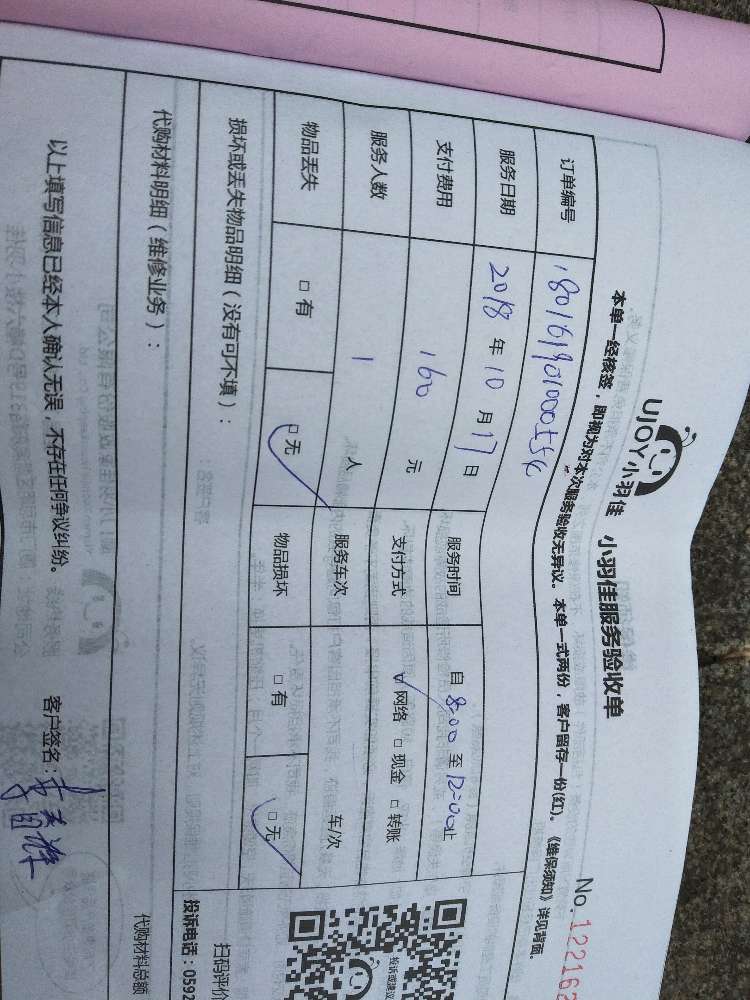 UJOY小羽佳
小羽佳服务验收单
No.122162
本单一经核签，即视为对本次服务验收无异议。本单一式两份，客户留存一份(红)。《维保须知》详见背面。
订单编号
服务日期 2018 年 10 月 17 日 服务时间 自 8:00 至 12:00 止
支付费用 160 元 支付方式 ☑ 网络 □ 现金 □ 转账
服务人数 1 人 服务车次 车/次
物品丢失 □ 有 ☑ 无 物品损坏 □ 有 ☑ 无
损坏或丢失物品明细（没有可不填）：
投诉或建议
扫码评价
投诉电话：0592
代购材料明细（维修业务）：
代购材料总额
以上填写信息已经本人确认无误，不存在任何争议纠纷。 客户签名：